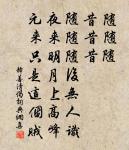 隨隨隨
昔昔昔
隨隨隨後無人識
夜來明月上高峰
元來只是這個賊
釋善清偈詞典網